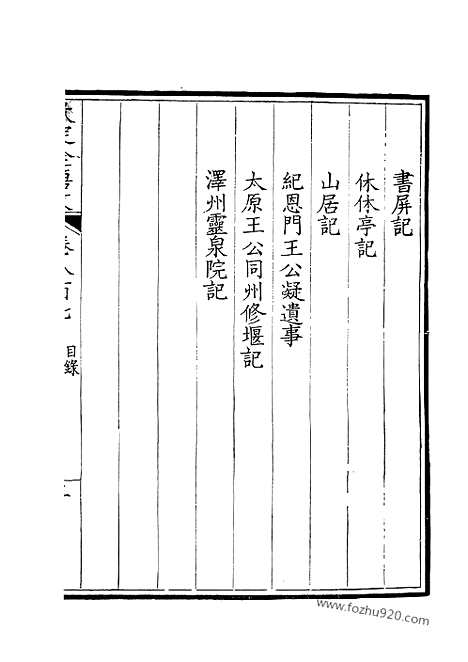 書屏記
休休亭記
山居記
紀恩門王公凝遺事
太原王公同州修堰記
澤州靈泉院記
卷八百七
目錄
www.fozhu920.com